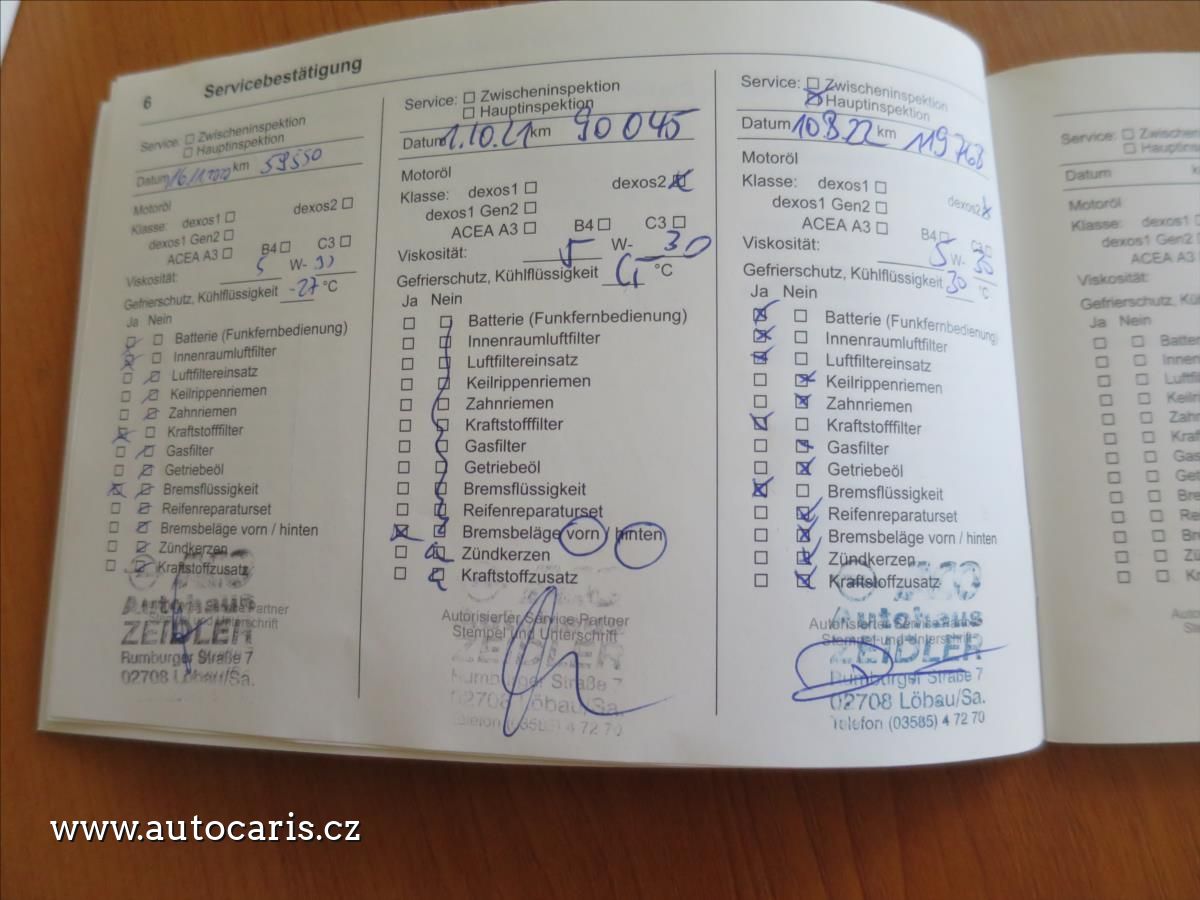 6 Servicebestätigung
Service: Zwischeninspektion
Hauptinspektion
Datum km 59550
Motoröl
Klasse: dexos1 dexos2
dexos1 Gen2
ACEA A3 B4 C3
Viskosität: 5 W- 30
Gefrierschutz, Kühlflüssigkeit -27 °C
Ja Nein
Batterie (Funkfernbedienung)
Innenraumluftfilter
Luftfiltereinsatz
Keilrippenriemen
Zahnriemen
Kraftstofffilter
Gasfilter
Getriebeöl
Bremsflüssigkeit
Reifenreparaturset
Bremsbeläge vorn / hinten
Zündkerzen
Kraftstoffzusatz
Autohaus
ZEIDLER
Rumburger Straße 7
02708 Löbau/Sa.
Service: Zwischeninspektion
Hauptinspektion
Datum 1.10.21 km 90045
Motoröl
Klasse: dexos1 dexos2
dexos1 Gen2
ACEA A3 B4 C3
Viskosität: 5 W- 30
Gefrierschutz, Kühlflüssigkeit °C
Ja Nein
Batterie (Funkfernbedienung)
Innenraumluftfilter
Luftfiltereinsatz
Keilrippenriemen
Zahnriemen
Kraftstofffilter
Gasfilter
Getriebeöl
Bremsflüssigkeit
Reifenreparaturset
Bremsbeläge vorn / hinten
Zündkerzen
Kraftstoffzusatz
Autorisierter Service Partner
Stempel und Unterschrift
ZEIDLER
Rumburger Straße 7
02708 Löbau/Sa.
Telefon (03585) 4 72 70
Service: Zwischeninspektion
Hauptinspektion
Datum 10.8.22 km 119768
Motoröl
Klasse: dexos1 dexos2
dexos1 Gen2
ACEA A3 B4 C3
Viskosität: 5 W- 30
Gefrierschutz, Kühlflüssigkeit 30 °C
Ja Nein
Batterie (Funkfernbedienung)
Innenraumluftfilter
Luftfiltereinsatz
Keilrippenriemen
Zahnriemen
Kraftstofffilter
Gasfilter
Getriebeöl
Bremsflüssigkeit
Reifenreparaturset
Bremsbeläge vorn / hinten
Zündkerzen
Kraftstoffzusatz
Autohaus
Stempel und Unterschrift
ZEIDLER
Rumburger Straße 7
02708 Löbau/Sa.
Telefon (03585) 4 72 70
Service:
Datum
Motoröl
Klasse: dexos1
dexos1 Gen2
ACEA A3
Viskosität:
Gefrierschutz,
Ja Nein
www.autocaris.cz